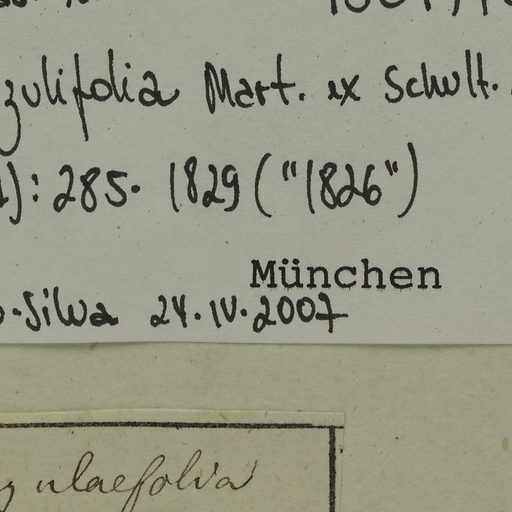 zulifolia Mart. ex Schult.
): 285. 1829 ("1826")
München
-Silva 24.IV.2007
ulaefolia